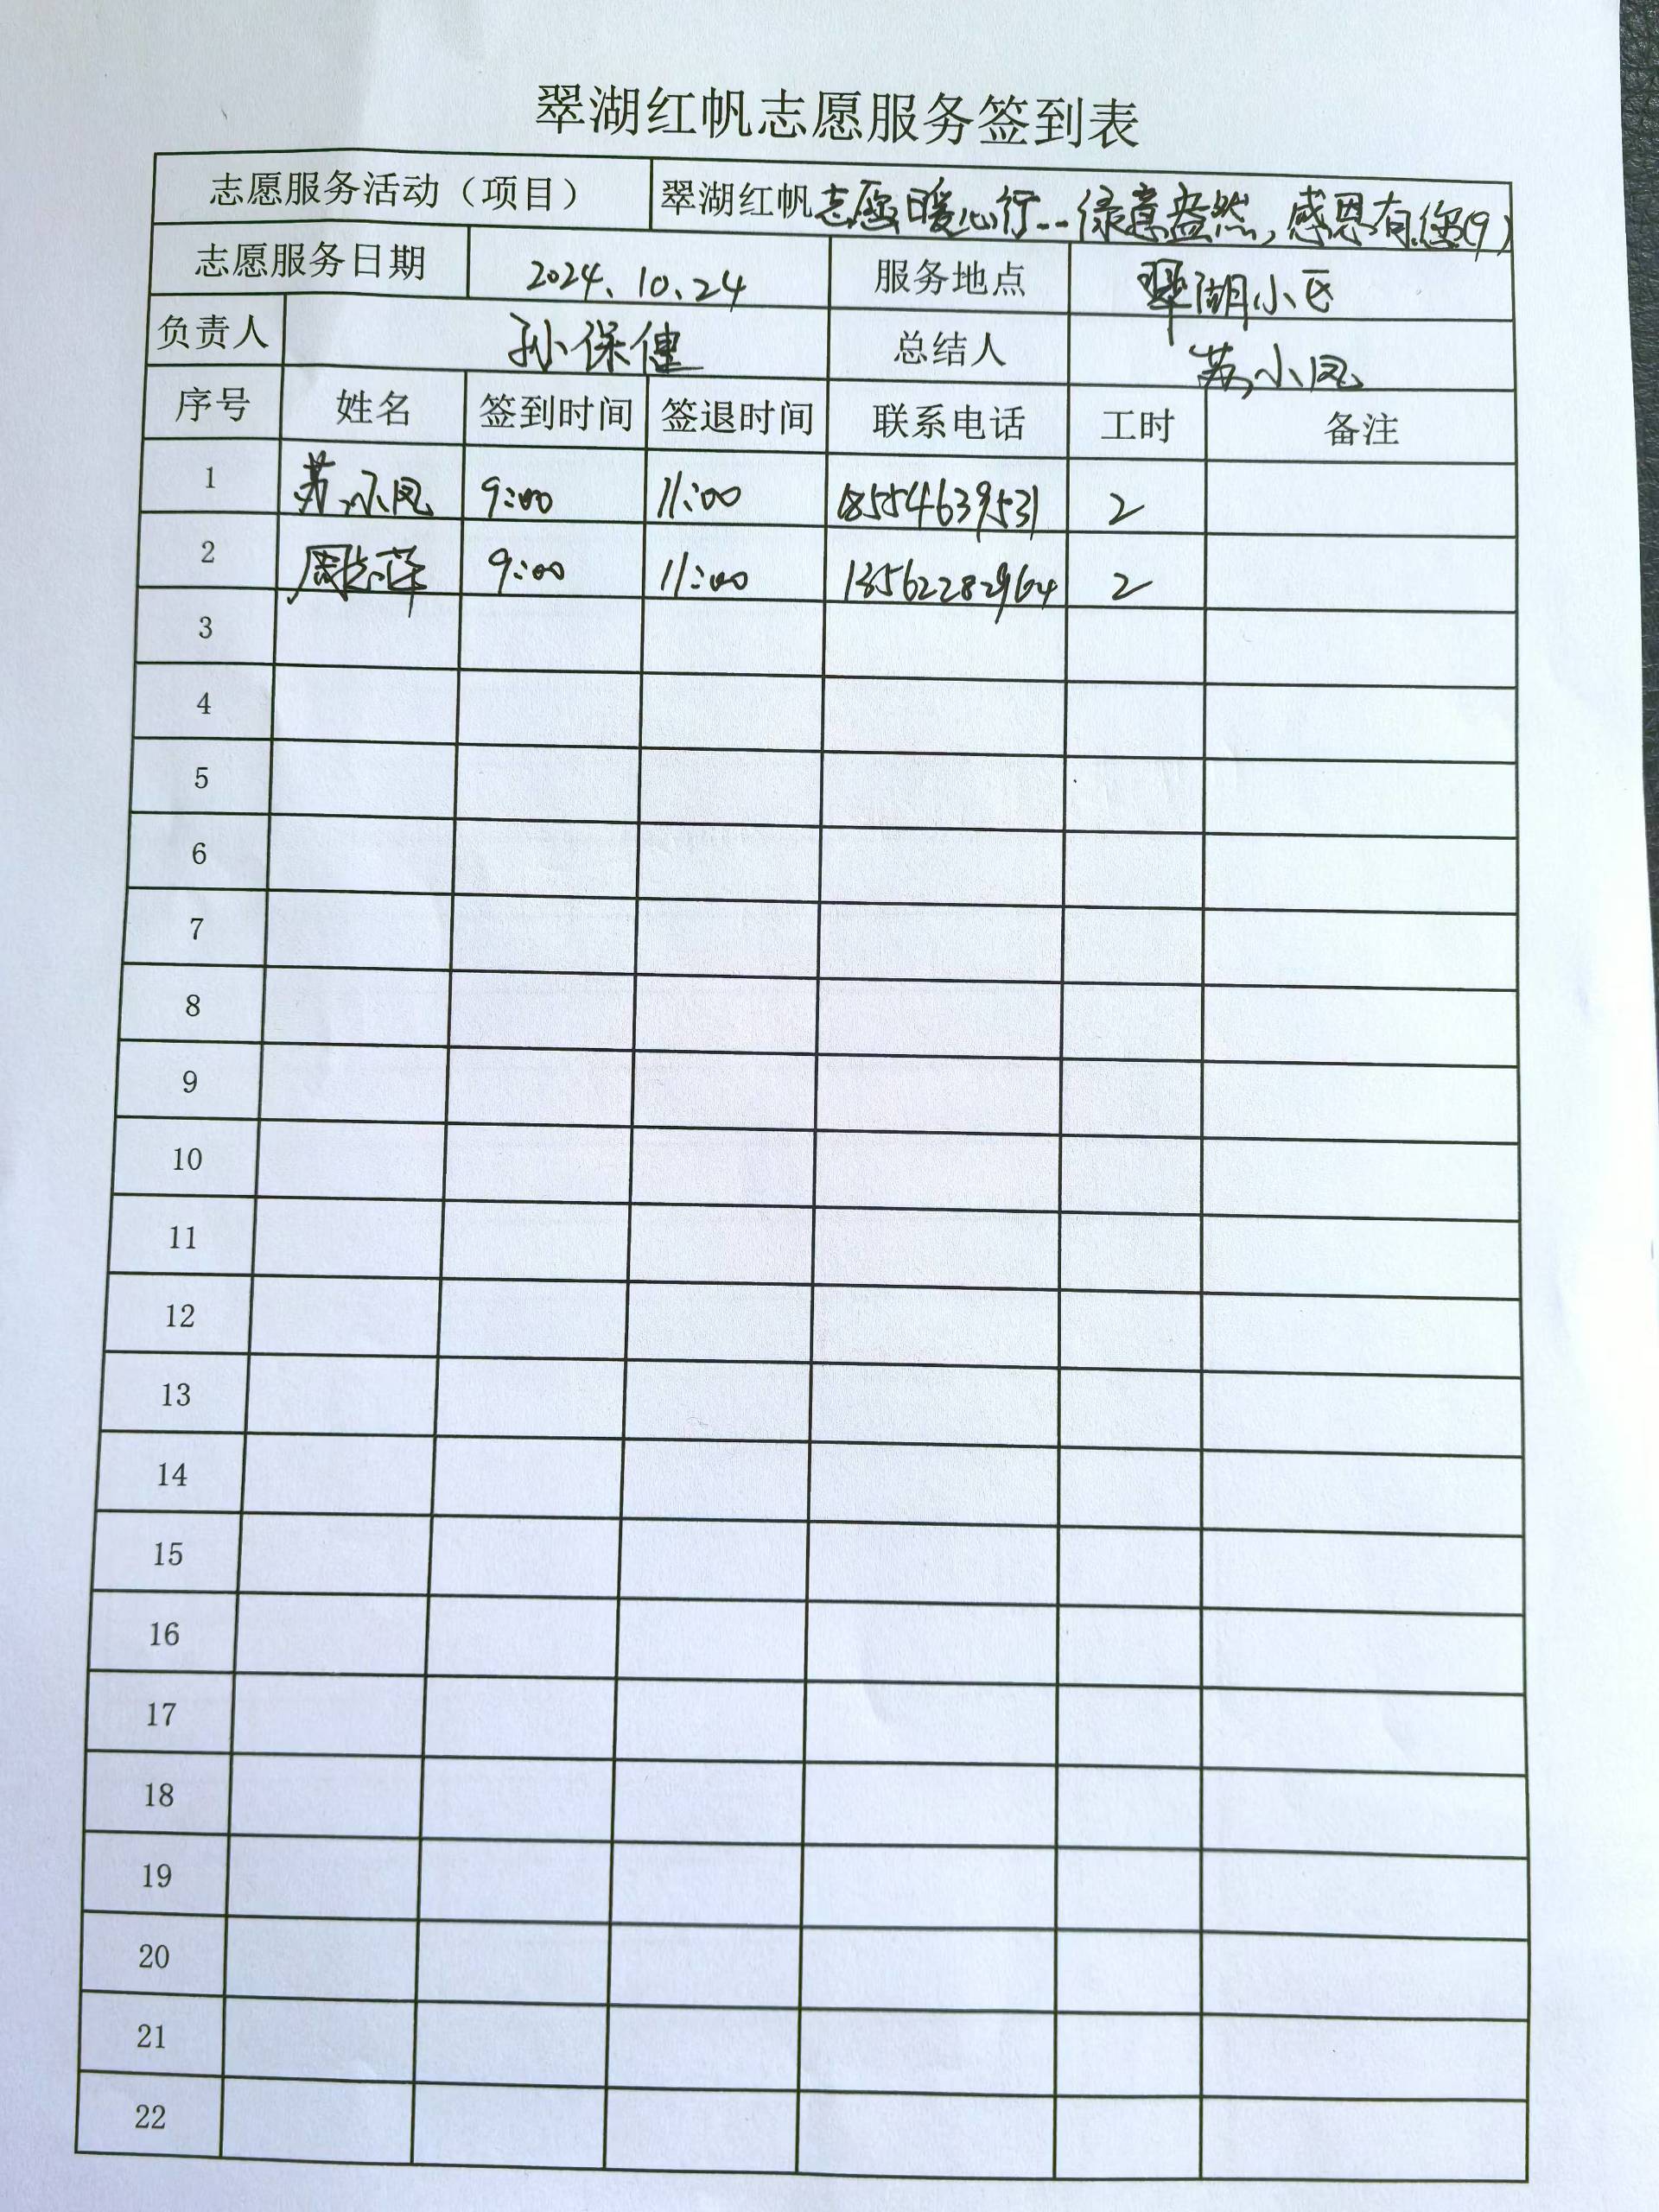 翠湖红帆志愿服务签到表
志愿服务活动（项目） 翠湖红帆志愿暖心行--绿意盎然,感恩有您(9)
志愿服务日期 2024、10、24 服务地点 翠湖小区
负责人 孙保健 总结人 苏小凤
序号 姓名 签到时间 签退时间 联系电话 工时 备注
1 苏小凤 9:00 11:00 18554639531 2
2 周志萍 9:00 11:00 13562282964 2
3
4
5
6
7
8
9
10
11
12
13
14
15
16
17
18
19
20
21
22